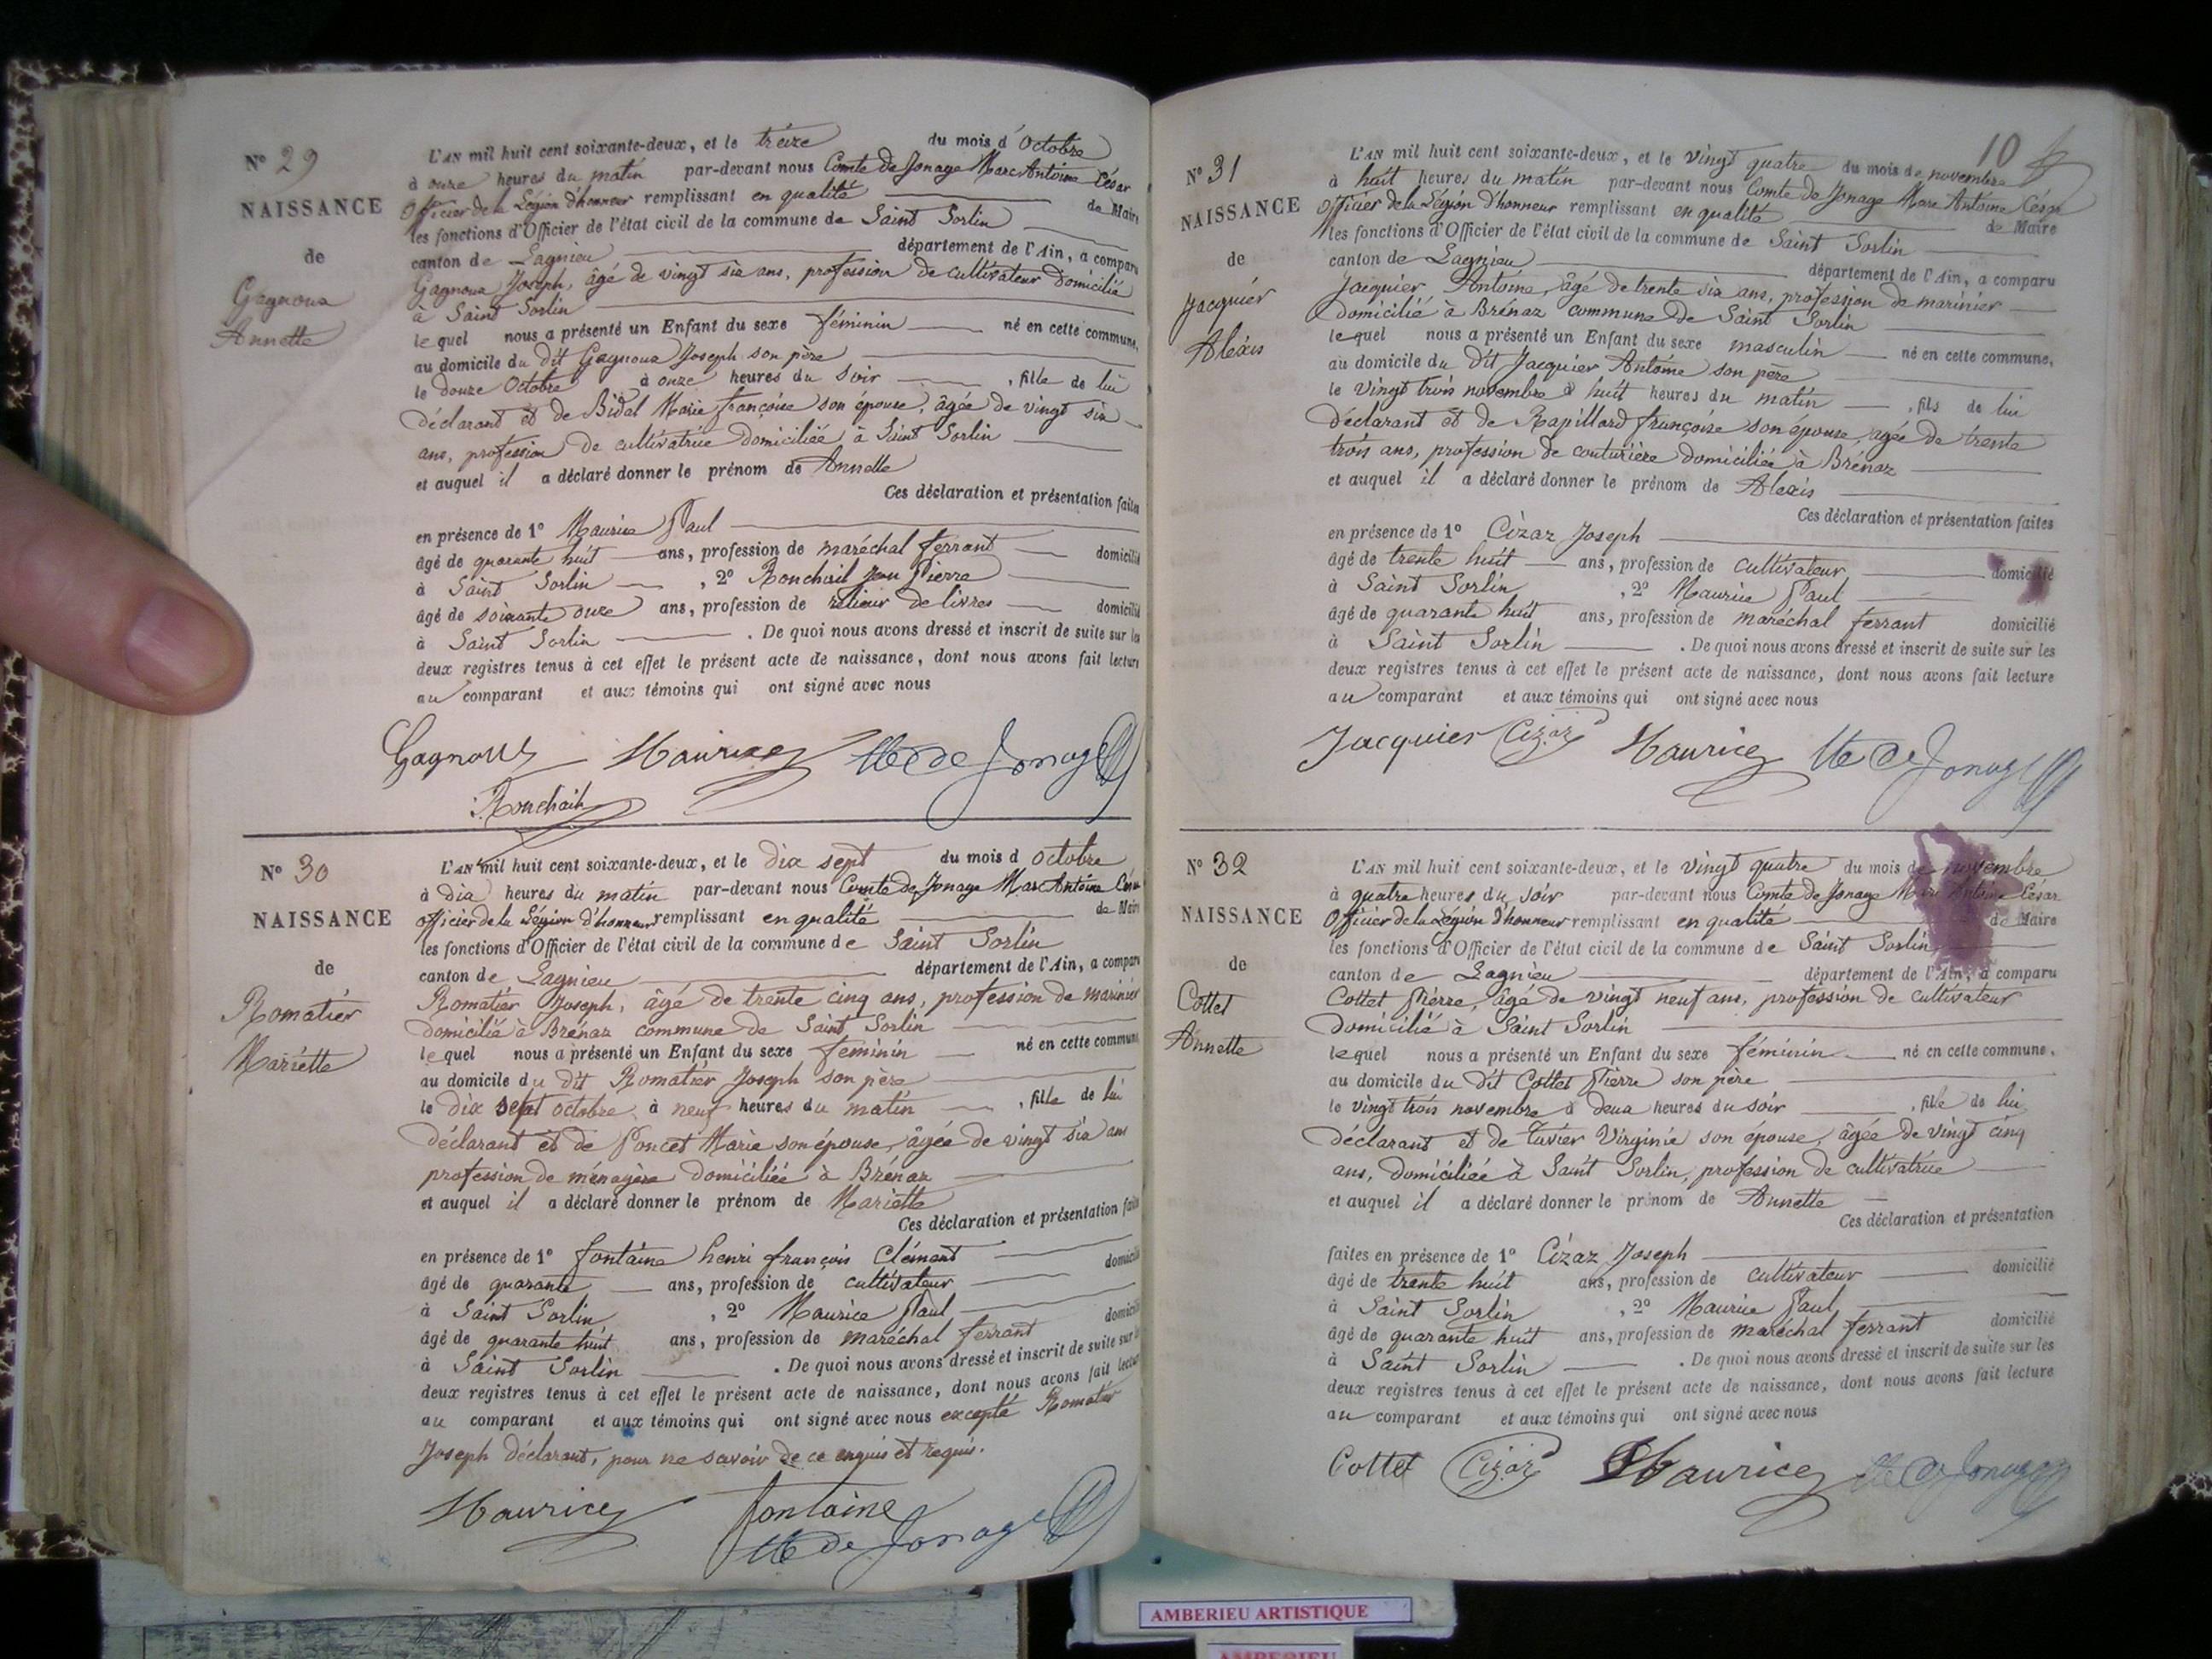 N° 29
NAISSANCE
de
Gagnoux
Annette
L'AN mil huit cent soixante-deux, et le treize du mois d'Octobre
à onze heures du matin par-devant nous Comte de Jonage Marc Antoine César
Officier de la Légion d'honneur remplissant en qualité de Maire
les fonctions d'Officier de l'état civil de la commune de Saint Sorlin
canton de Lagnieu département de l'Ain, a comparu
Gagnoux Joseph, âgé de vingt six ans, profession de cultivateur domicilié
à Saint Sorlin
lequel nous a présenté un Enfant du sexe féminin né en cette commune,
au domicile du dit Gagnoux Joseph son père
le douze Octobre à onze heures du soir , fille de lui
déclarant et de Bidal Marie françoise son épouse, âgée de vingt six
ans, profession de cultivatrice domiciliée à Saint Sorlin
et auquel il a déclaré donner le prénom de Annette
Ces déclaration et présentation faites
en présence de 1° Maurice Paul
âgé de quarante huit ans, profession de maréchal ferrant domicilié
à Saint Sorlin , 2° Ronchail Jean Pierre
âgé de soixante onze ans, profession de relieur de livres domicilié
à Saint Sorlin . De quoi nous avons dressé et inscrit de suite sur les
deux registres tenus à cet effet le présent acte de naissance, dont nous avons fait lecture
au comparant et aux témoins qui ont signé avec nous
Gagnoux Maurice Cte de Jonage
Ronchail
N° 30
NAISSANCE
de
Romatier
Mariette
L'AN mil huit cent soixante-deux, et le dix sept du mois d octobre
à dix heures du matin par-devant nous Comte de Jonage Marc Antoine César
officier de la Légion d'honneur remplissant en qualité de Maire
les fonctions d'Officier de l'état civil de la commune de Saint Sorlin
canton de Lagnieu département de l'Ain, a comparu
Romatier Joseph, âgé de trente cinq ans, profession de marinier
domicilié à Brénaz commune de Saint Sorlin
lequel nous a présenté un Enfant du sexe féminin né en cette commune
au domicile du dit Romatier Joseph son père
le dix sept octobre à neuf heures du matin , fille de lui
déclarant et de Poncet Marie son épouse, âgée de vingt six ans
profession de ménagère domiciliée à Brénaz
et auquel il a déclaré donner le prénom de Mariette
Ces déclaration et présentation faites
en présence de 1° fontaine henri françois Clément
âgé de quarante ans, profession de cultivateur domicilié
à Saint Sorlin , 2° Maurice Paul
âgé de quarante huit ans, profession de maréchal ferrant domicilié
à Saint Sorlin . De quoi nous avons dressé et inscrit de suite sur les
deux registres tenus à cet effet le présent acte de naissance, dont nous avons fait lecture
au comparant et aux témoins qui ont signé avec nous excepté Romatier
Joseph déclarant, pour ne savoir de ce enquis et requis.
Maurice fontaine
Cte de Jonage
10
N° 31
NAISSANCE
de
Jacquier
Alexis
L'AN mil huit cent soixante-deux, et le vingt quatre du mois de novembre
à huit heures du matin par-devant nous Comte de Jonage Marc Antoine César
Officier de la Légion d'honneur remplissant en qualité de Maire
les fonctions d'Officier de l'état civil de la commune de Saint Sorlin
canton de Lagnieu département de l'Ain, a comparu
Jacquier Antoine, âgé de trente six ans, profession de marinier
domicilié à Brénaz commune de Saint Sorlin
lequel nous a présenté un Enfant du sexe masculin né en cette commune,
au domicile du dit Jacquier Antoine son père
le vingt trois novembre à huit heures du matin , fils de lui
déclarant et de Rapillard françoise son épouse, âgée de trente
trois ans, profession de couturière domiciliée à Brénaz
et auquel il a déclaré donner le prénom de Alexis
Ces déclaration et présentation faites
en présence de 1° Cizaz Joseph
âgé de trente huit ans, profession de cultivateur domicilié
à Saint Sorlin , 2° Maurice Paul
âgé de quarante huit ans, profession de maréchal ferrant domicilié
à Saint Sorlin . De quoi nous avons dressé et inscrit de suite sur les
deux registres tenus à cet effet le présent acte de naissance, dont nous avons fait lecture
au comparant et aux témoins qui ont signé avec nous
Jacquier Cizaz Maurice Cte de Jonage
N° 32
NAISSANCE
de
Cottet
Annette
L'AN mil huit cent soixante-deux, et le vingt quatre du mois de novembre
à quatre heures du soir par-devant nous Comte de Jonage Marc Antoine César
Officier de la Légion d'honneur remplissant en qualité de Maire
les fonctions d'Officier de l'état civil de la commune de Saint Sorlin
canton de Lagnieu département de l'Ain, a comparu
Cottet Pierre, âgé de vingt neuf ans, profession de cultivateur
domicilié à Saint Sorlin
lequel nous a présenté un Enfant du sexe féminin né en cette commune,
au domicile du dit Cottet Pierre son père
le vingt trois novembre à deux heures du soir , fille de lui
déclarant et de Tuvier Virginie son épouse, âgée de vingt cinq
ans, domiciliée à Saint Sorlin, profession de cultivatrice
et auquel il a déclaré donner le prénom de Annette
Ces déclaration et présentation
faites en présence de 1° Cizaz Joseph
âgé de trente huit ans, profession de cultivateur domicilié
à Saint Sorlin , 2° Maurice Paul
âgé de quarante huit ans, profession de maréchal ferrant domicilié
à Saint Sorlin . De quoi nous avons dressé et inscrit de suite sur les
deux registres tenus à cet effet le présent acte de naissance, dont nous avons fait lecture
au comparant et aux témoins qui ont signé avec nous
Cottet Cizaz Maurice Cte de Jonage
AMBERIEU ARTISTIQUE
AMBERIEU